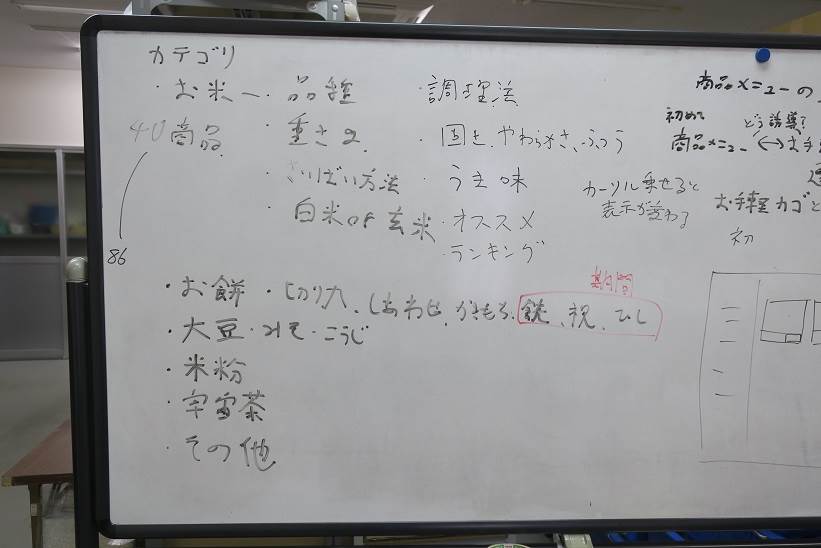 カテゴリ
・お米 ー ・品種
40商品
86
・重さ
・さいばい方法
・白米 or 玄米
・調理法
・固さ、やわらかさ、ふつう
・うま味
・オススメ
・ランキング
・お餅 ・切り、しあわせ、かきもち、鏡、祝、ひし
期間
・大豆・みそ・こうじ
・米粉
・宇宙茶
・その他
カーソル乗せると
表示が変わる
商品メニューの
初めて
どう誘導
商品メニュー ←→ お手
お手軽カゴと
初